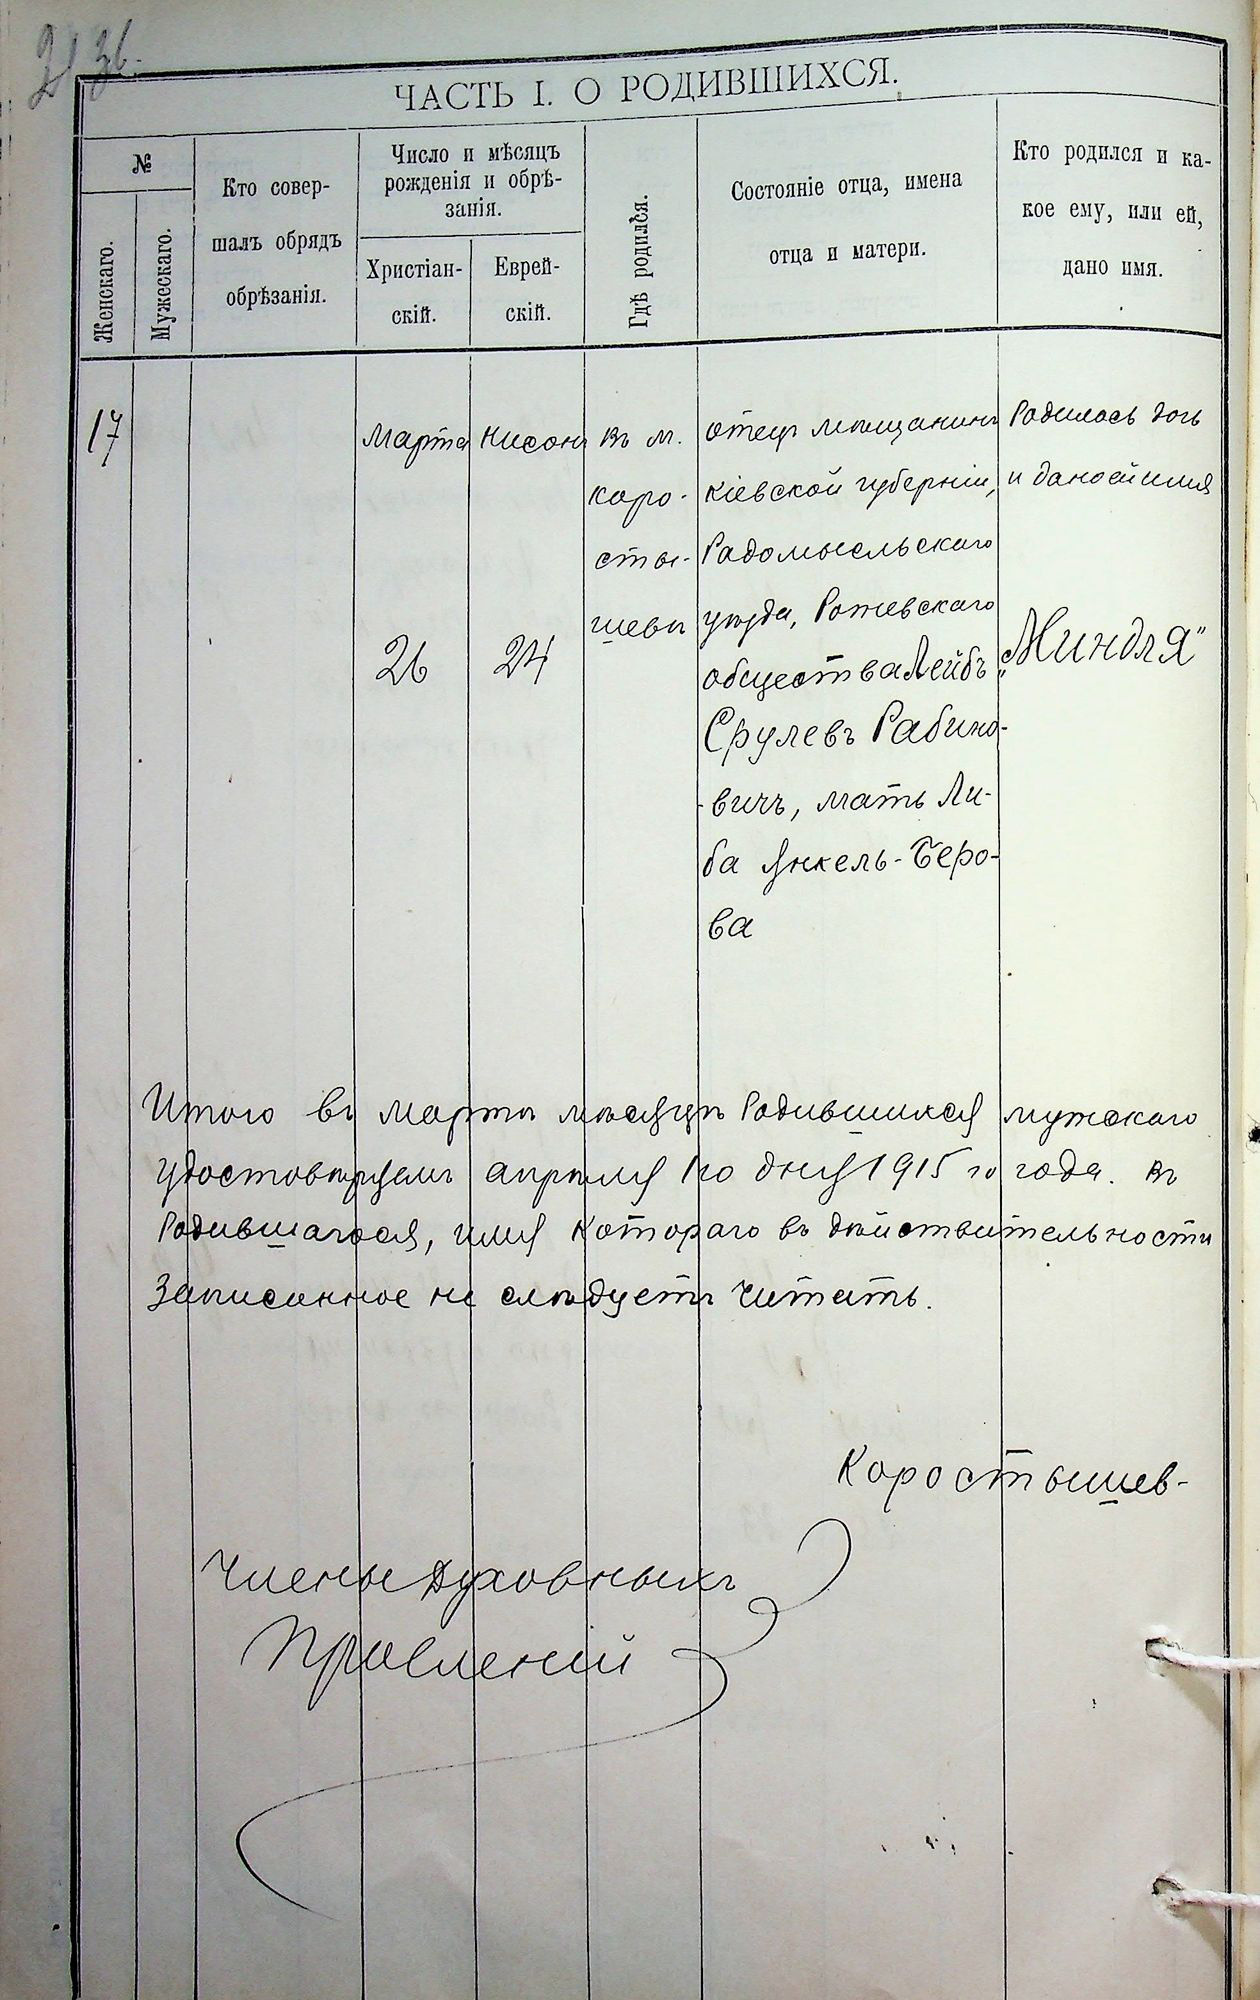 36.
ЧАСТЬ I. О РОДИВШИХСЯ.
№
Женскаго.
Мужескаго.
Кто совер-
шалъ обрядъ
обрѣзанія.
Число и мѣсяцъ
рожденія и обрѣ-
занія.
Христіан-
скій.
Еврей-
скій.
Гдѣ родился.
Состояніе отца, имена
отца и матери.
Кто родился и ка-
кое ему, или ей,
дано имя.
17
Марта
26
Нисонъ
24
въ м.
Коро-
сты-
шевѣ
отецъ мѣщанинъ
Кіевской губерніи,
Радомысльскаго
уѣзда, Рожевскаго
общества Лейбъ
Срулевъ Рабино-
-вичъ, мать Ли-
ба Янкель-Беро-
ва
Родилась дочь
и дано ей имя
„Миндля"
Итого въ мартѣ мѣсяцѣ Родившихся мужскаго
удостовѣряемъ апрѣля 1го дня 1915 го года. въ
Родившагося, имя Котораго въ дѣйствительности
Записанное не слѣдуетъ читать.
Коростышев-
Члены Духовныхъ
Правленій